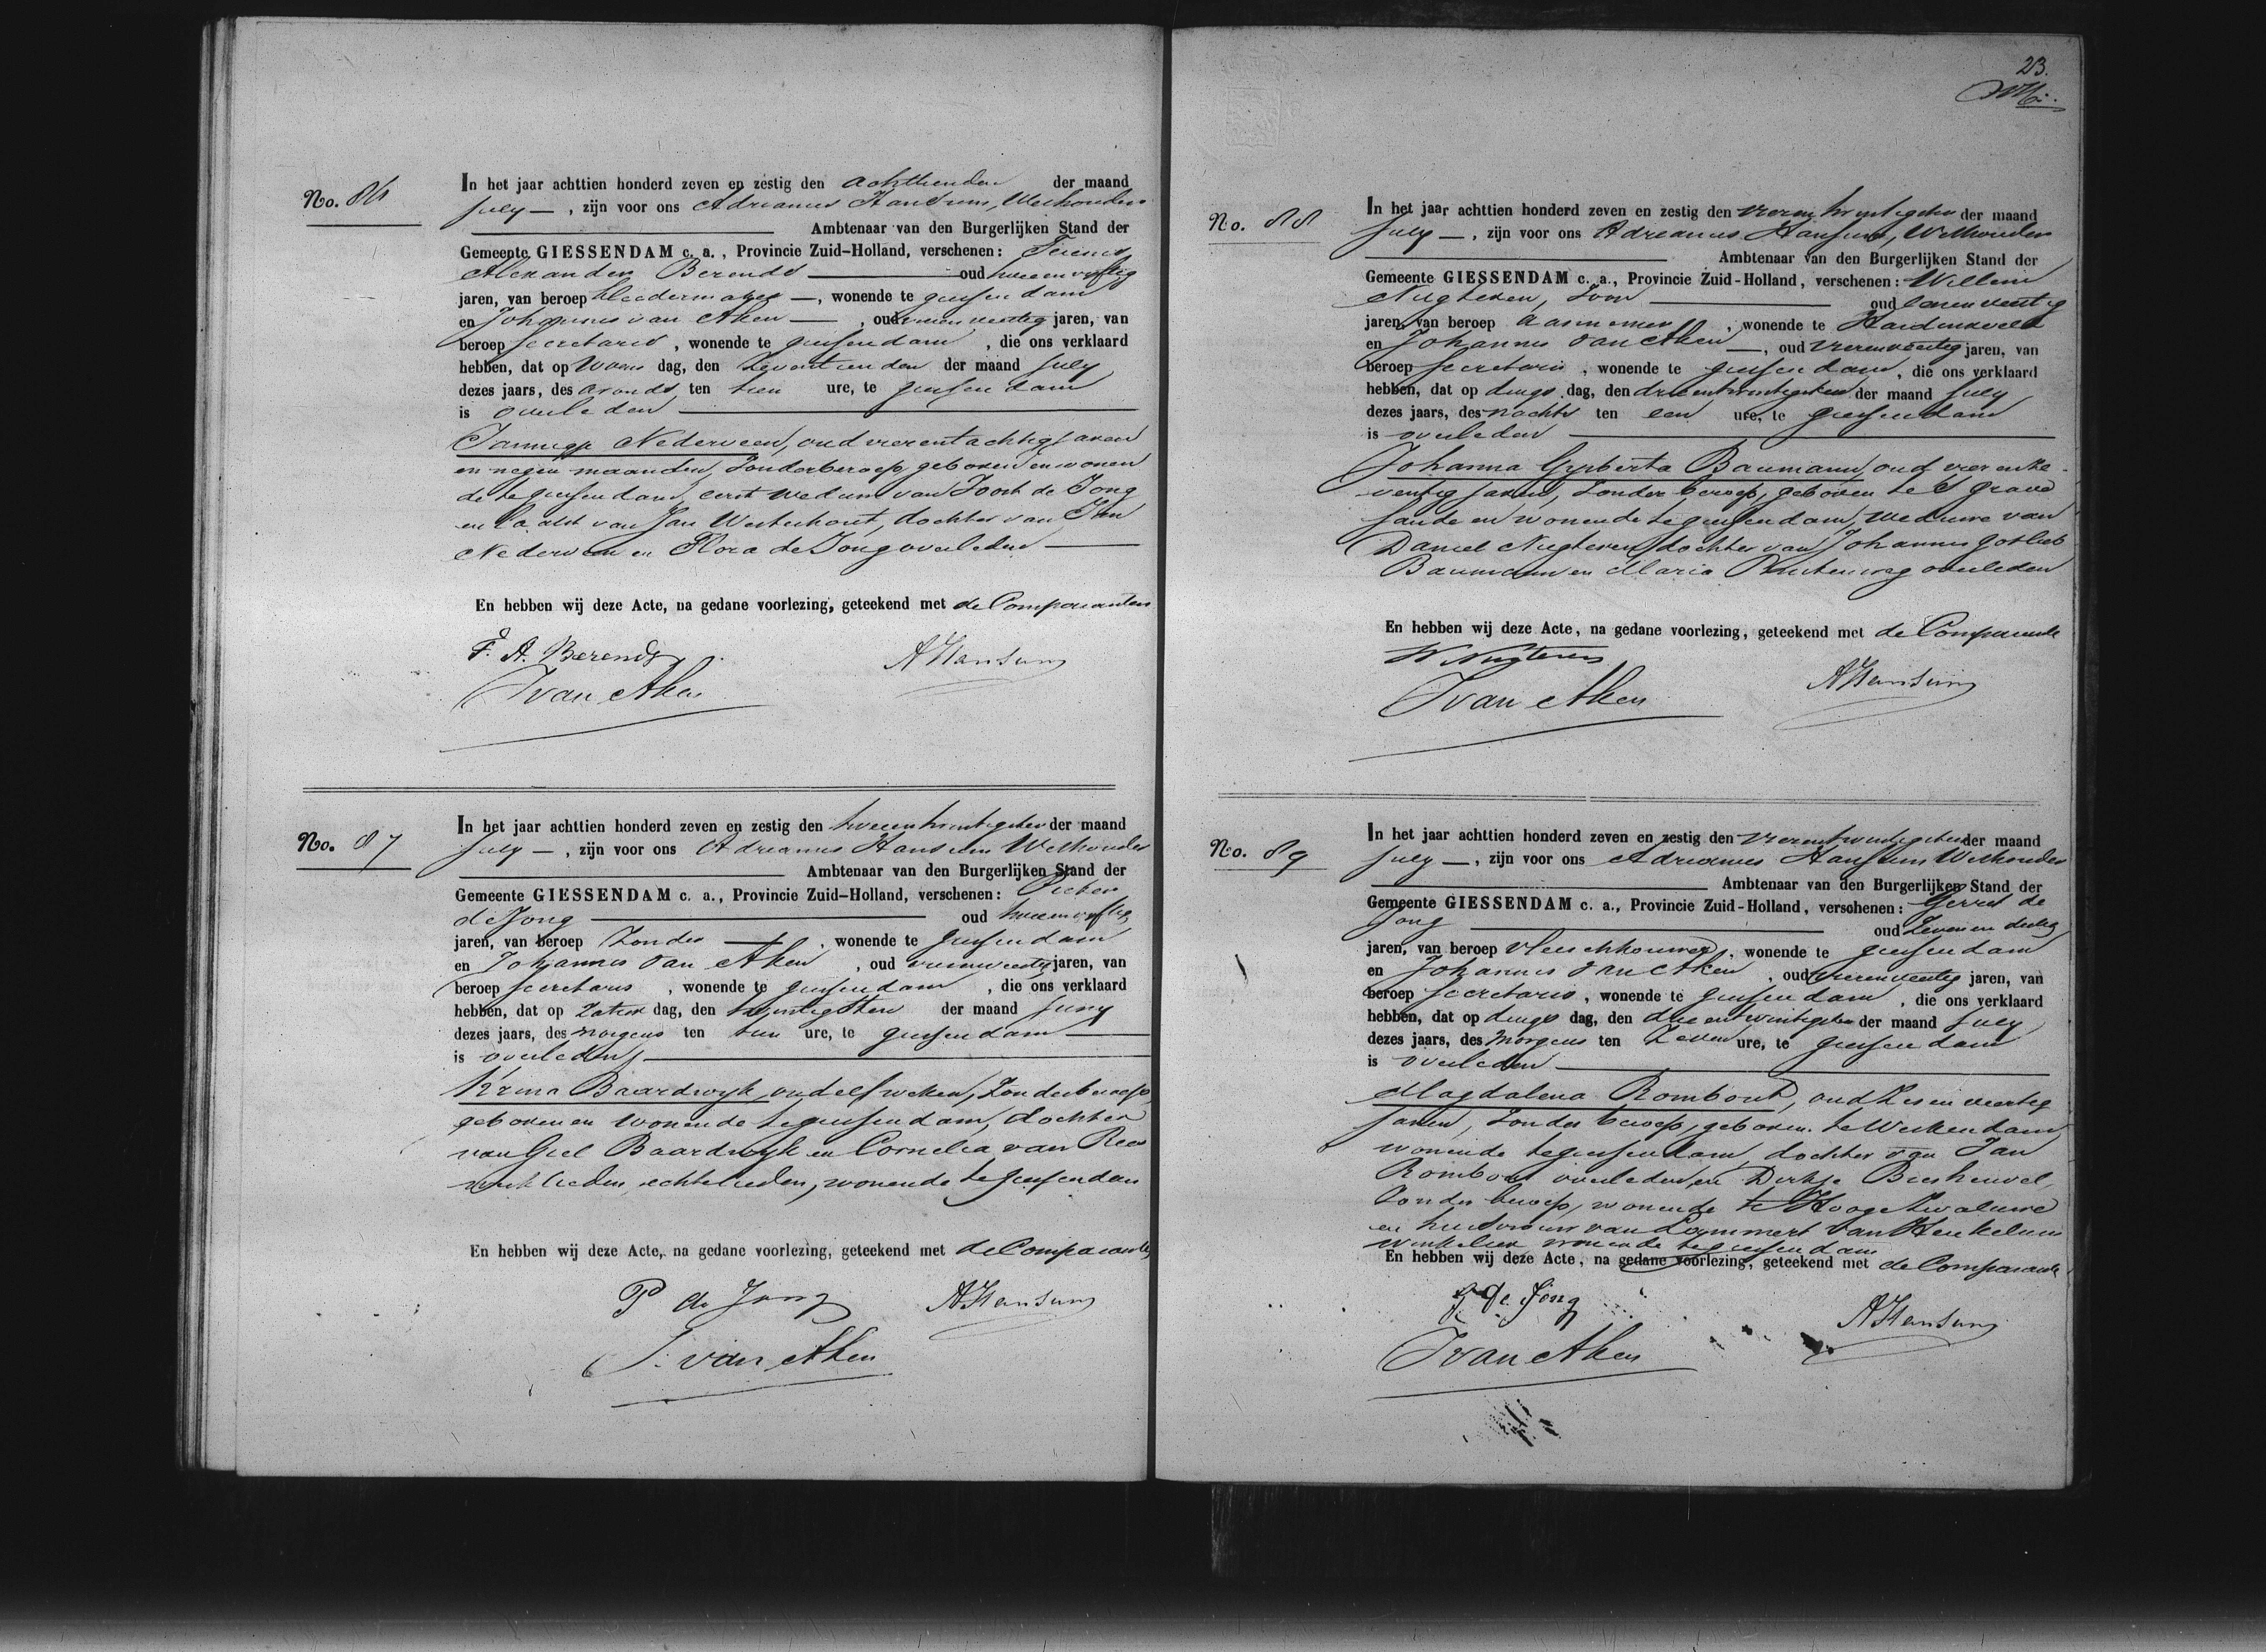 No. 86
In het jaar achttien honderd zeven en zestig den achttienden der maand
July —, zijn voor ons Adrianus Hansum, Wethouder
Ambtenaar van den Burgerlijken Stand der
Gemeente GIESSENDAM c. a., Provincie Zuid-Holland, verschenen:
Alexander Berends oud tweeenvyftig
jaren, van beroep kleedermaker —, wonende te Giessendam
en Johannes van Aken —, oud vierenveertig jaren, van
beroep Secretaris, wonende te Giessendam, die ons verklaard
hebben, dat op Woens dag, den zeventienden der maand July
dezes jaars, des avonds ten tien ure, te Giessendam
is overleden
Jannigje Nederveen, oud vierentachtig jaren
en negen maanden, zonder beroep, geboren en wonen
de te Giessendam, eerst weduwe van Joost de Jong
en laatst van Jan Westerhout, dochter van Jan
Nederveen en Flora de Jong overleden —
En hebben wij deze Acte, na gedane voorlezing, geteekend met de Comparanten
F. A. Berends
AHansum
JvanAken
No. 87
In het jaar achttien honderd zeven en zestig den tweeentwintigsten der maand
July —, zijn voor ons Adrianus Hansum Wethouder
Ambtenaar van den Burgerlijken Stand der
Gemeente GIESSENDAM c. a., Provincie Zuid-Holland, verschenen: Pieter
de Jong oud tweeenvyftig
jaren, van beroep Zonder —, wonende te Giessendam
en Johannes van Aken, oud vierenveertig jaren, van
beroep Secretaris, wonende te Giessendam, die ons verklaard
hebben, dat op Zatur dag, den twintigsten der maand July
dezes jaars, des morgens ten tien ure, te Giessendam
is overleden
Krina Baardwyk, oud elf weken, Zonder beroep,
geboren en wonende te Giessendam, dochter
van Giel Baardwyk en Cornelia van Rees
werklieden, echtelieden, wonende te Giessendam
En hebben wij deze Acte, na gedane voorlezing, geteekend met de Comparanten
P de Jong
AHansum
J. van Aken
23.
No. 88
In het jaar achttien honderd zeven en zestig den vierentwintigsten der maand
July —, zijn voor ons Adrianus Hansum, Wethouder
Ambtenaar van den Burgerlijken Stand der
Gemeente GIESSENDAM c. a., Provincie Zuid-Holland, verschenen: Willem
Nugteren, Zoon oud eenenveertig
jaren, van beroep aannemer, wonende te Hardinxveld
en Johannes van Aken —, oud vierenveertig jaren, van
beroep Secretaris, wonende te Giessendam, die ons verklaard
hebben, dat op dings dag, den drieentwintigsten der maand July
dezes jaars, des nachts ten een ure, te Giessendam
is overleden
Johanna Gysberta Baumann, oud vier enze-
ventig jaren, zonder beroep, geboren te s Grave
sande en wonende te Giessendam, weduwe van
Daniel Nugteren, dochter van Johannes Gotlieb
Baumann en Maria overleden
En hebben wij deze Acte, na gedane voorlezing, geteekend met de Comparante
W Nugteren
AHansum
JvanAken
No. 89
In het jaar achttien honderd zeven en zestig den vierentwintigsten der maand
July —, zijn voor ons Adrianus Hansum Wethouder
Ambtenaar van den Burgerlijken Stand der
Gemeente GIESSENDAM c. a., Provincie Zuid-Holland, verschenen: Gerret de
Jong oud Zevenendertig
jaren, van beroep vleeschhouwer, wonende te Giessendam
en Johannes van Aken, oud vierenveertig jaren, van
beroep Secretaris, wonende te Giessendam, die ons verklaard
hebben, dat op dings dag, den drieentwintigsten der maand July,
dezes jaars, des morgens ten Zeven ure, te Giessendam
is overleden
Magdalena Rombout, oud Zesenveertig
jaren, zonder beroep, geboren te Werkendam
wonende te Giessendam, dochter van Jan
Rombout overleden, en Dirkje Biesheuvel,
Zonder beroep, wonende te Hooge Zwaluwe
en huisvrouw van Lammert van Heukelum
winkelier wonende te Giessendam
En hebben wij deze Acte, na gedane voorlezing, geteekend met de Comparante
G. de Jong
AHansum
JvanAken